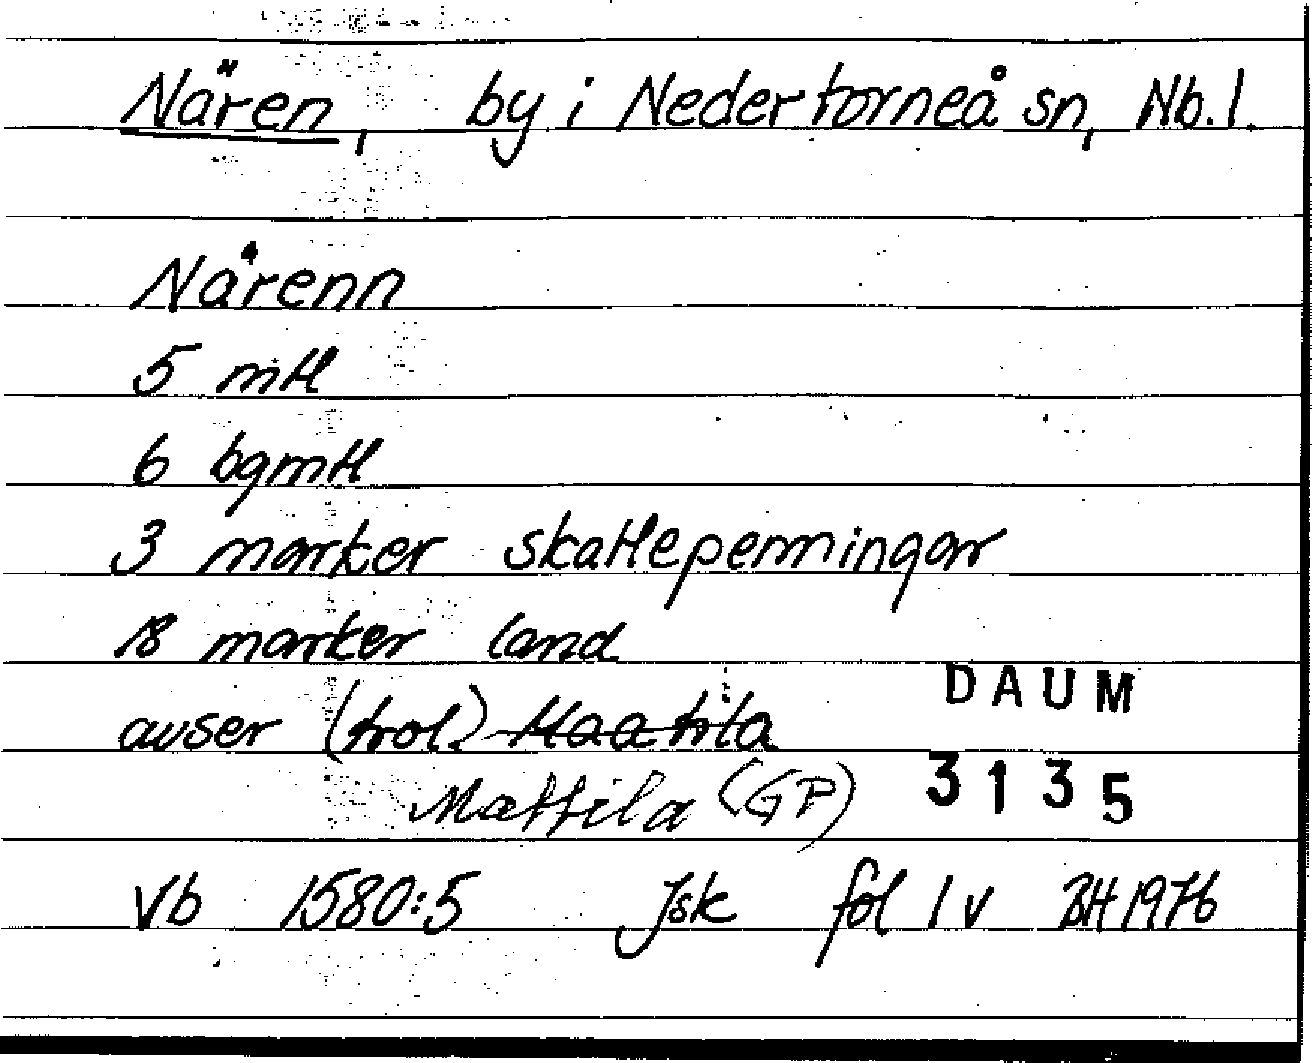 Nären, by i Nedertorneå sn, Nb. l.
Nårenn
5 mtl
6 bgmtl
3 marker skattepenningar
18 marker land
avser (trol.) Haatila
DAUM
Mattila (GP)
3135
Vb 1580:5 Jsk fol 1 v BH 1976